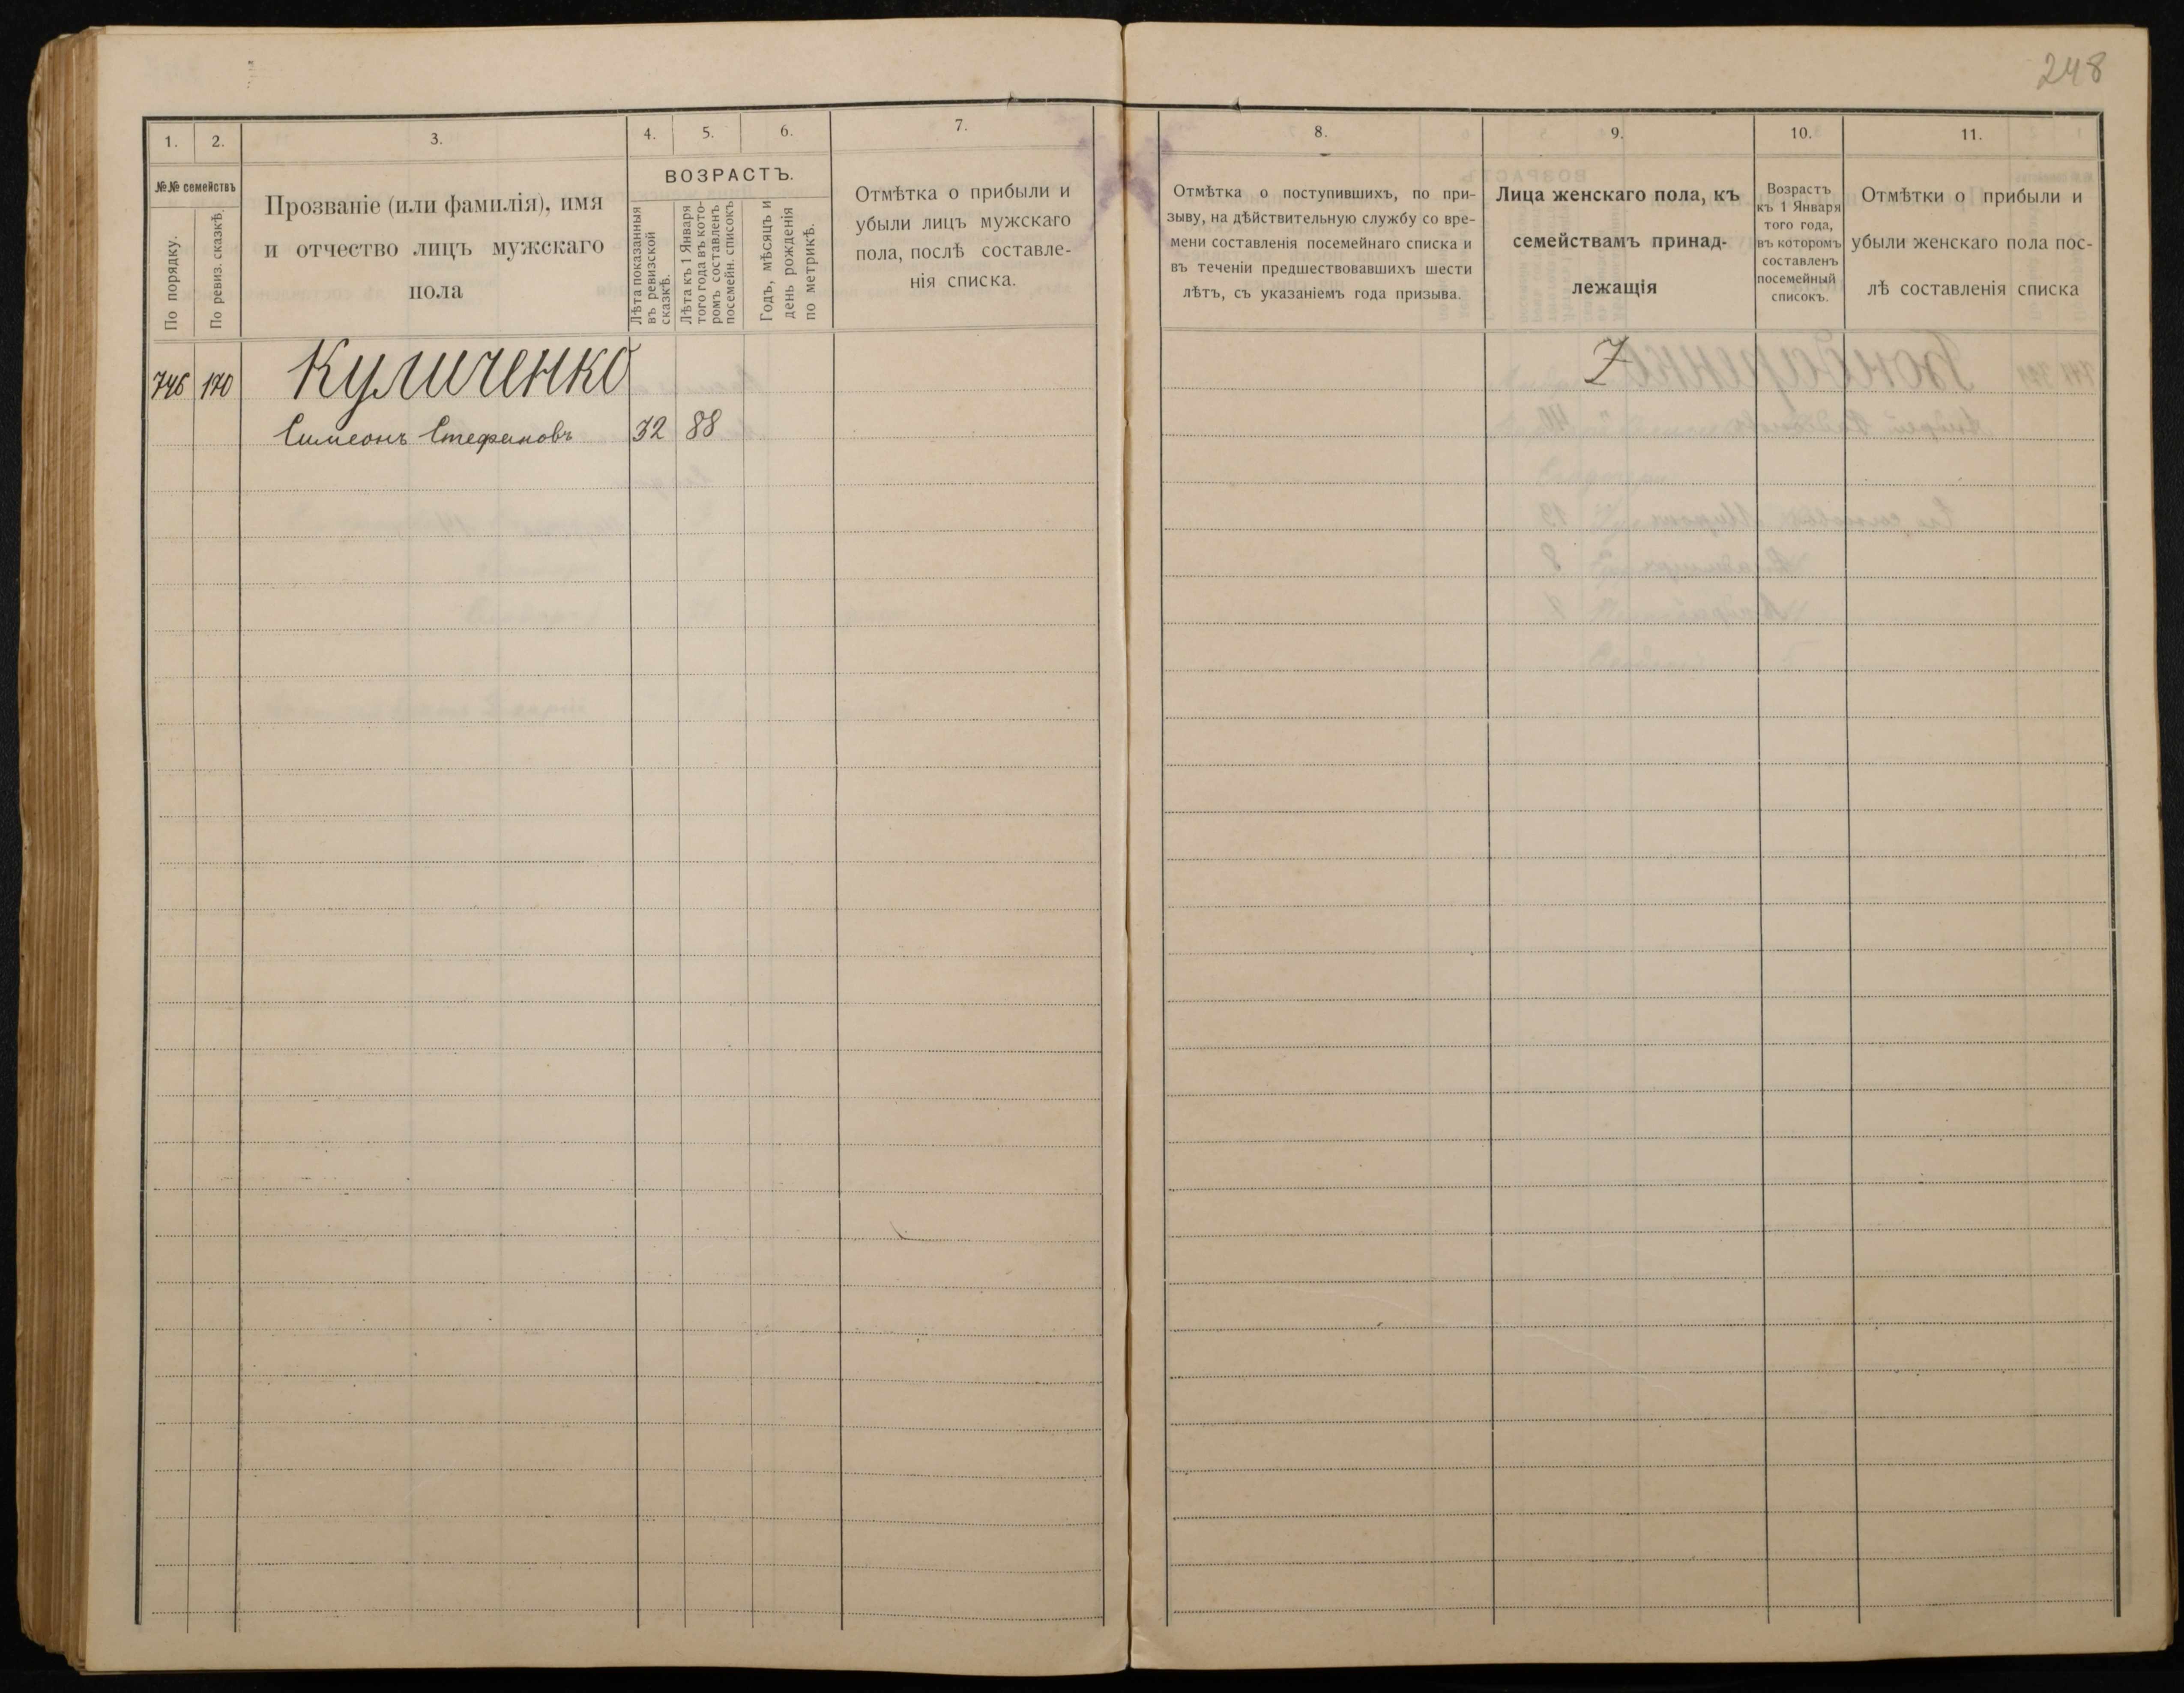 248
1.
2.
3.
4.
5.
6.
7.
№№ семействъ
По порядку.
По ревиз. сказкѣ.
Прозваніе (или фамилія), имя
и отчество лицъ мужскаго
пола
ВОЗРАСТЪ.
Лѣта показанныя
въ ревизской
сказкѣ.
Лѣта къ 1 Января
того года въ кото-
ромъ составленъ
посемейн. списокъ
Годъ, мѣсяцъ и
день рожденія
по метрикѣ.
Отмѣтка о прибыли и
убыли лицъ мужскаго
пола, послѣ составле-
нія списка.
746 170 Куличенко
Симеонъ Стефановъ 32 88
8.
9.
10.
11.
Отмѣтка о поступившихъ, по при-
зыву, на дѣйствительную службу со вре-
мени составленія посемейнаго списка и
въ теченіи предшествовавшихъ шести
лѣтъ, съ указаніемъ года призыва.
Лица женскаго пола, къ
семействамъ принад-
лежащія
Возрастъ
къ 1 Января
того года,
въ которомъ
составленъ
посемейный
списокъ.
Отмѣтки о прибыли и
убыли женскаго пола пос-
лѣ составленія списка